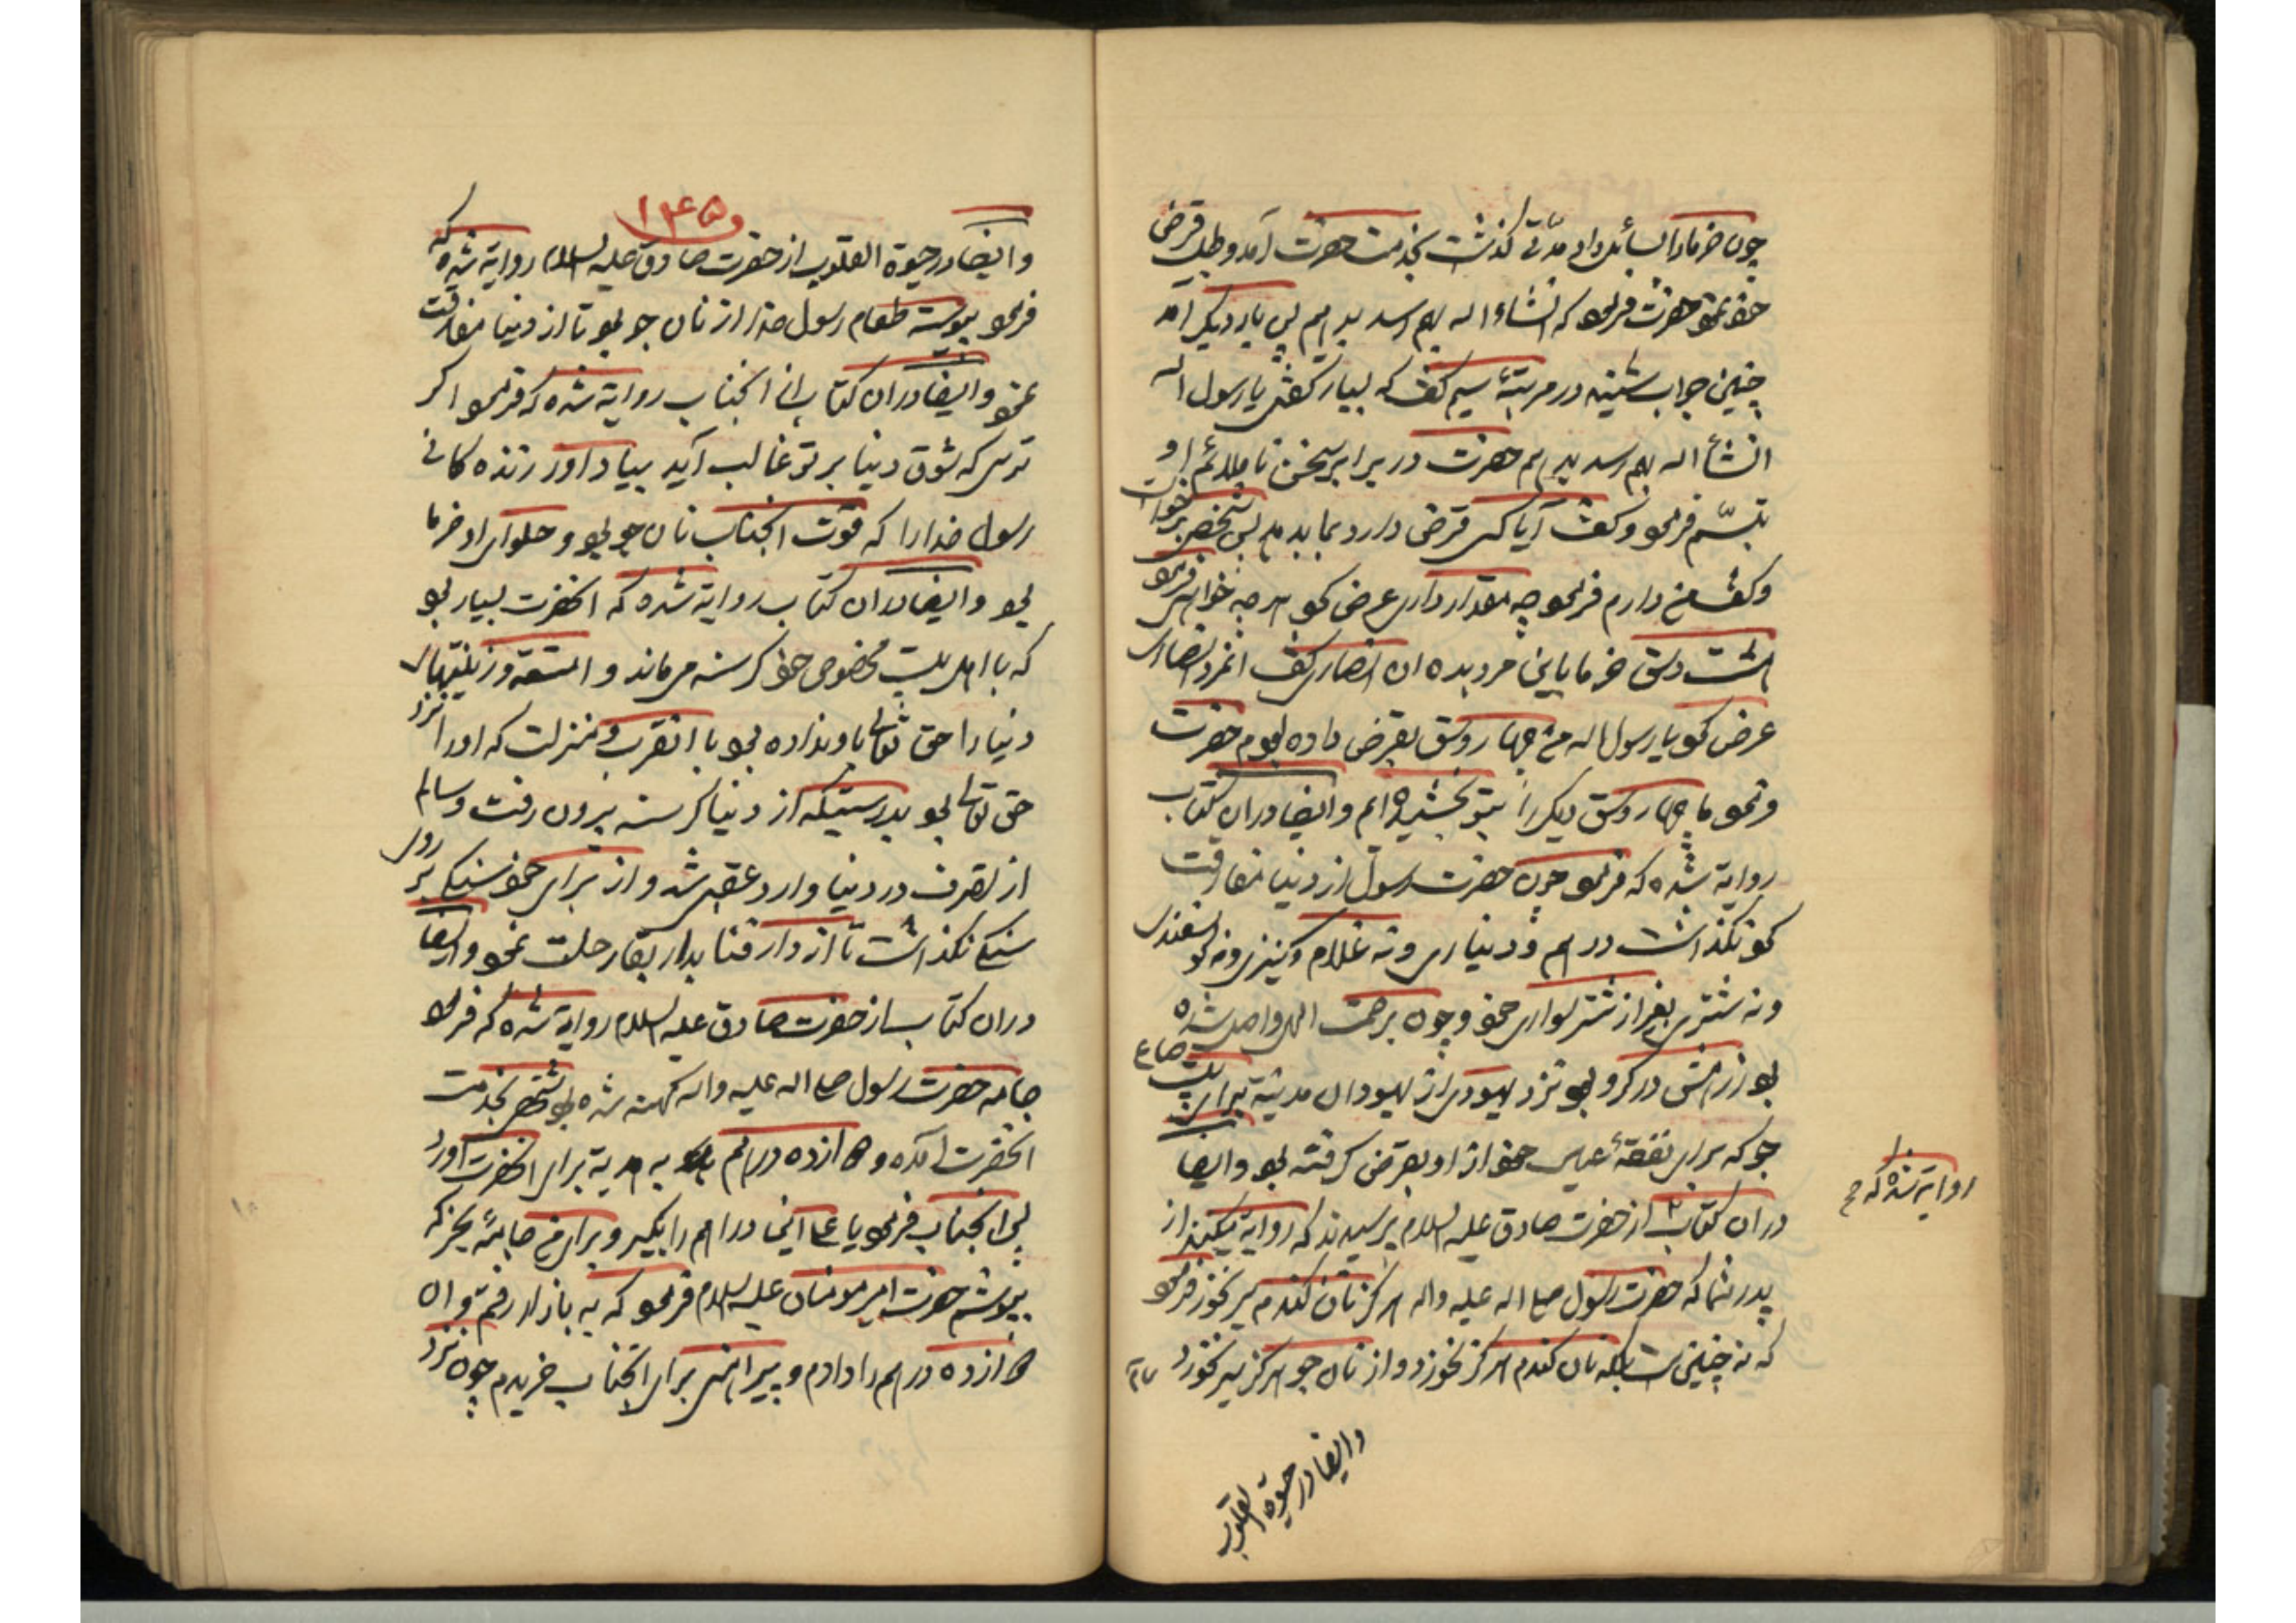 چون خرما را بسائل داد مدّتی گذشت بخدمت حضرت آمد و طلب قرض
خود نمود حضرت فرمود که انشاء اله بهم رسد بدهم پس بار دیگر آمد
چنین جواب شنید در مرتبهٔ سیم گفت که بسیار گفتی یا رسول اله
انشأ اله بهم رسد بدهم حضرت در برابر سخن ناملائم او
تبسّم فرمود و گفت آیا کسی قرض دارد بما بدهد پس شخصی برخواست
و گفت من دارم فرمود چه مقدار داری عرض کرد هر چه خواهی فرمود
هشت وسق خرما باین مرد بده ان انصاری گفت
عرض کرد یا رسول اله من چهار وسق بقرض داده بودم حضرت
فرمود ما چهار وسق دیگر را بتو بخشیده ایم وایضا دران کتاب
روایة شده که فرمود چون حضرت رسول از دنیا مفارقت
کرد نگذاشت درهم و دیناری و نه غلام و کنیزی و نه گوسفندی
و نه شتری بغیر از شتر سواری خود و چون برحمت الهی واصل شده
بود زرهش در گرو بود نزد یهودی از یهودان مدینه برای بیست صاع
جو که برای نفقهٔ عیال خود از او بقرض گرفته بود وایضا
روایة شده که
دران کتاب از حضرت صادق علیه السلام پرسیدند که روایة میکنند از
پدر شما که حضرت رسول صلی اله علیه واله هرگز نان گندم سیر نخورد فرمود
که نه چنین است بلکه نان گندم هرگز نخورد و از نان جو هرگز سیر نخورد
وایضا در حیوة القلوب
۱۴۵
وایضا در حیوة القلوب از حضرت صادق علیه السلام روایة شده که
فرمود پیوسته طعام رسول خدا از نان جو بود تا از دنیا مفارقت
نمود وایضا دران کتاب از انجناب روایة شده که فرمود اگر
ترسی که شوق دنیا بر تو غالب آید بیاد اور زنده کانی
رسول خدا را که قوت انجناب نان جو بود و حلوای او خرما
بود وایضا دران کتاب روایة شده که انحضرت بسیار بود
که با اهل بیت مخصوص خود گرسنه می ماند و امتعه و زینتهای
دنیا را حق تعالی باو نداده بود با انقرب و منزلت که او را نزد
حق تعالی بود بدرستیکه از دنیا گرسنه بیرون رفت و سالم
از تصرف در دنیا وارد عقبی شد و از برای خود سنگی بر روی
سنگی نگذاشت تا از دار فنا بدار بقا رحلت نمود وایضا
دران کتاب از حضرت صادق علیه السلام روایة شده که فرمود
جامه حضرت رسول صلی اله علیه واله کهنه شده بود شخصی بخدمت
انحضرت آمده دوازده درهم به هدیة برای انحضرت آورد
پس انجناب فرمود یا علی این دراهم را بگیر و برای من جامهٔ بخر که
بپوشم حضرت امیر مومنان علیه السلام فرمود که به بازار رفتم و ان
دوازده درهم را دادم و پیراهنی برای انجناب خریدم چون نزد